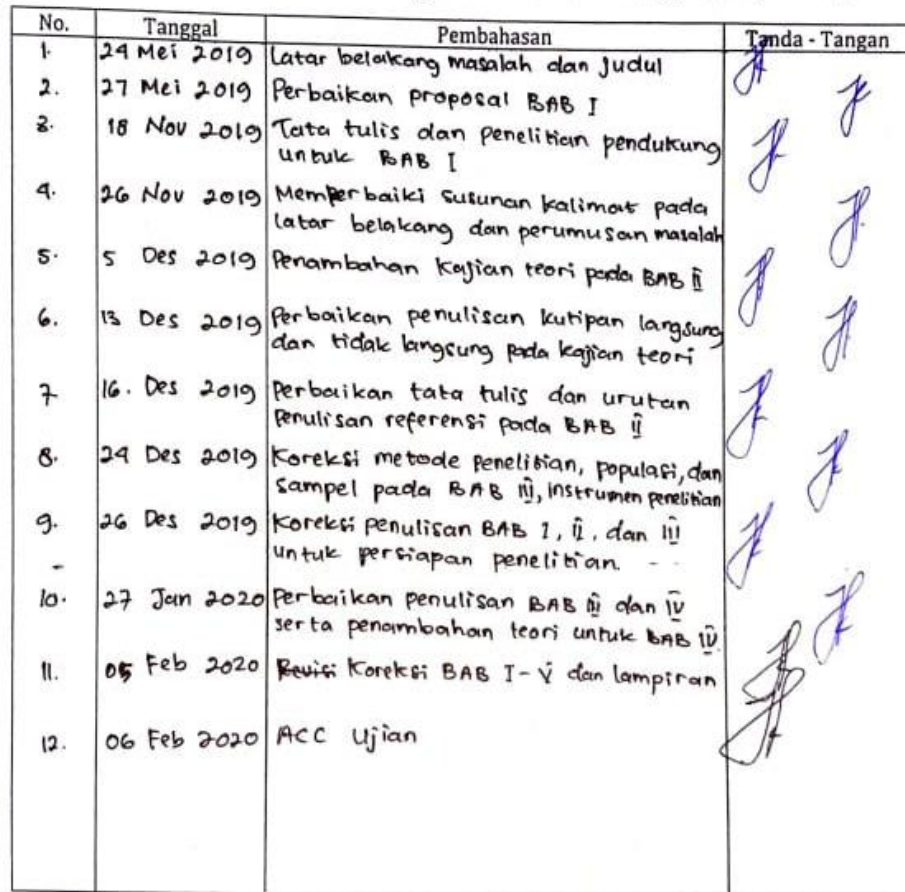 No. Tanggal Pembahasan Tanda - Tangan
1. 24 Mei 2019 Latar belakang masalah dan Judul
2. 27 Mei 2019 Perbaikan proposal BAB I
3. 18 Nov 2019 Tata tulis dan penelitian pendukung
untuk BAB I
4. 26 Nov 2019 Memperbaiki susunan kalimat pada
latar belakang dan perumusan masalah
5. 5 Des 2019 Penambahan Kajian teori pada BAB II
6. 13 Des 2019 Perbaikan penulisan kutipan langsung
dan tidak langsung pada kajian teori
7 16. Des 2019 Perbaikan tata tulis dan urutan
Penulisan referensi pada BAB II
8. 24 Des 2019 Koreksi metode penelitian, populasi, dan
Sampel pada BAB III, instrumen penelitian
9. 26 Des 2019 Koreksi penulisan BAB I, II, dan III
- untuk persiapan penelitian. - -
10. 27 Jan 2020 Perbaikan penulisan BAB III dan IV
serta penambahan teori untuk BAB IV.
11. 05 Feb 2020 Revisi Koreksi BAB I-V dan lampiran
12. 06 Feb 2020 ACC Ujian